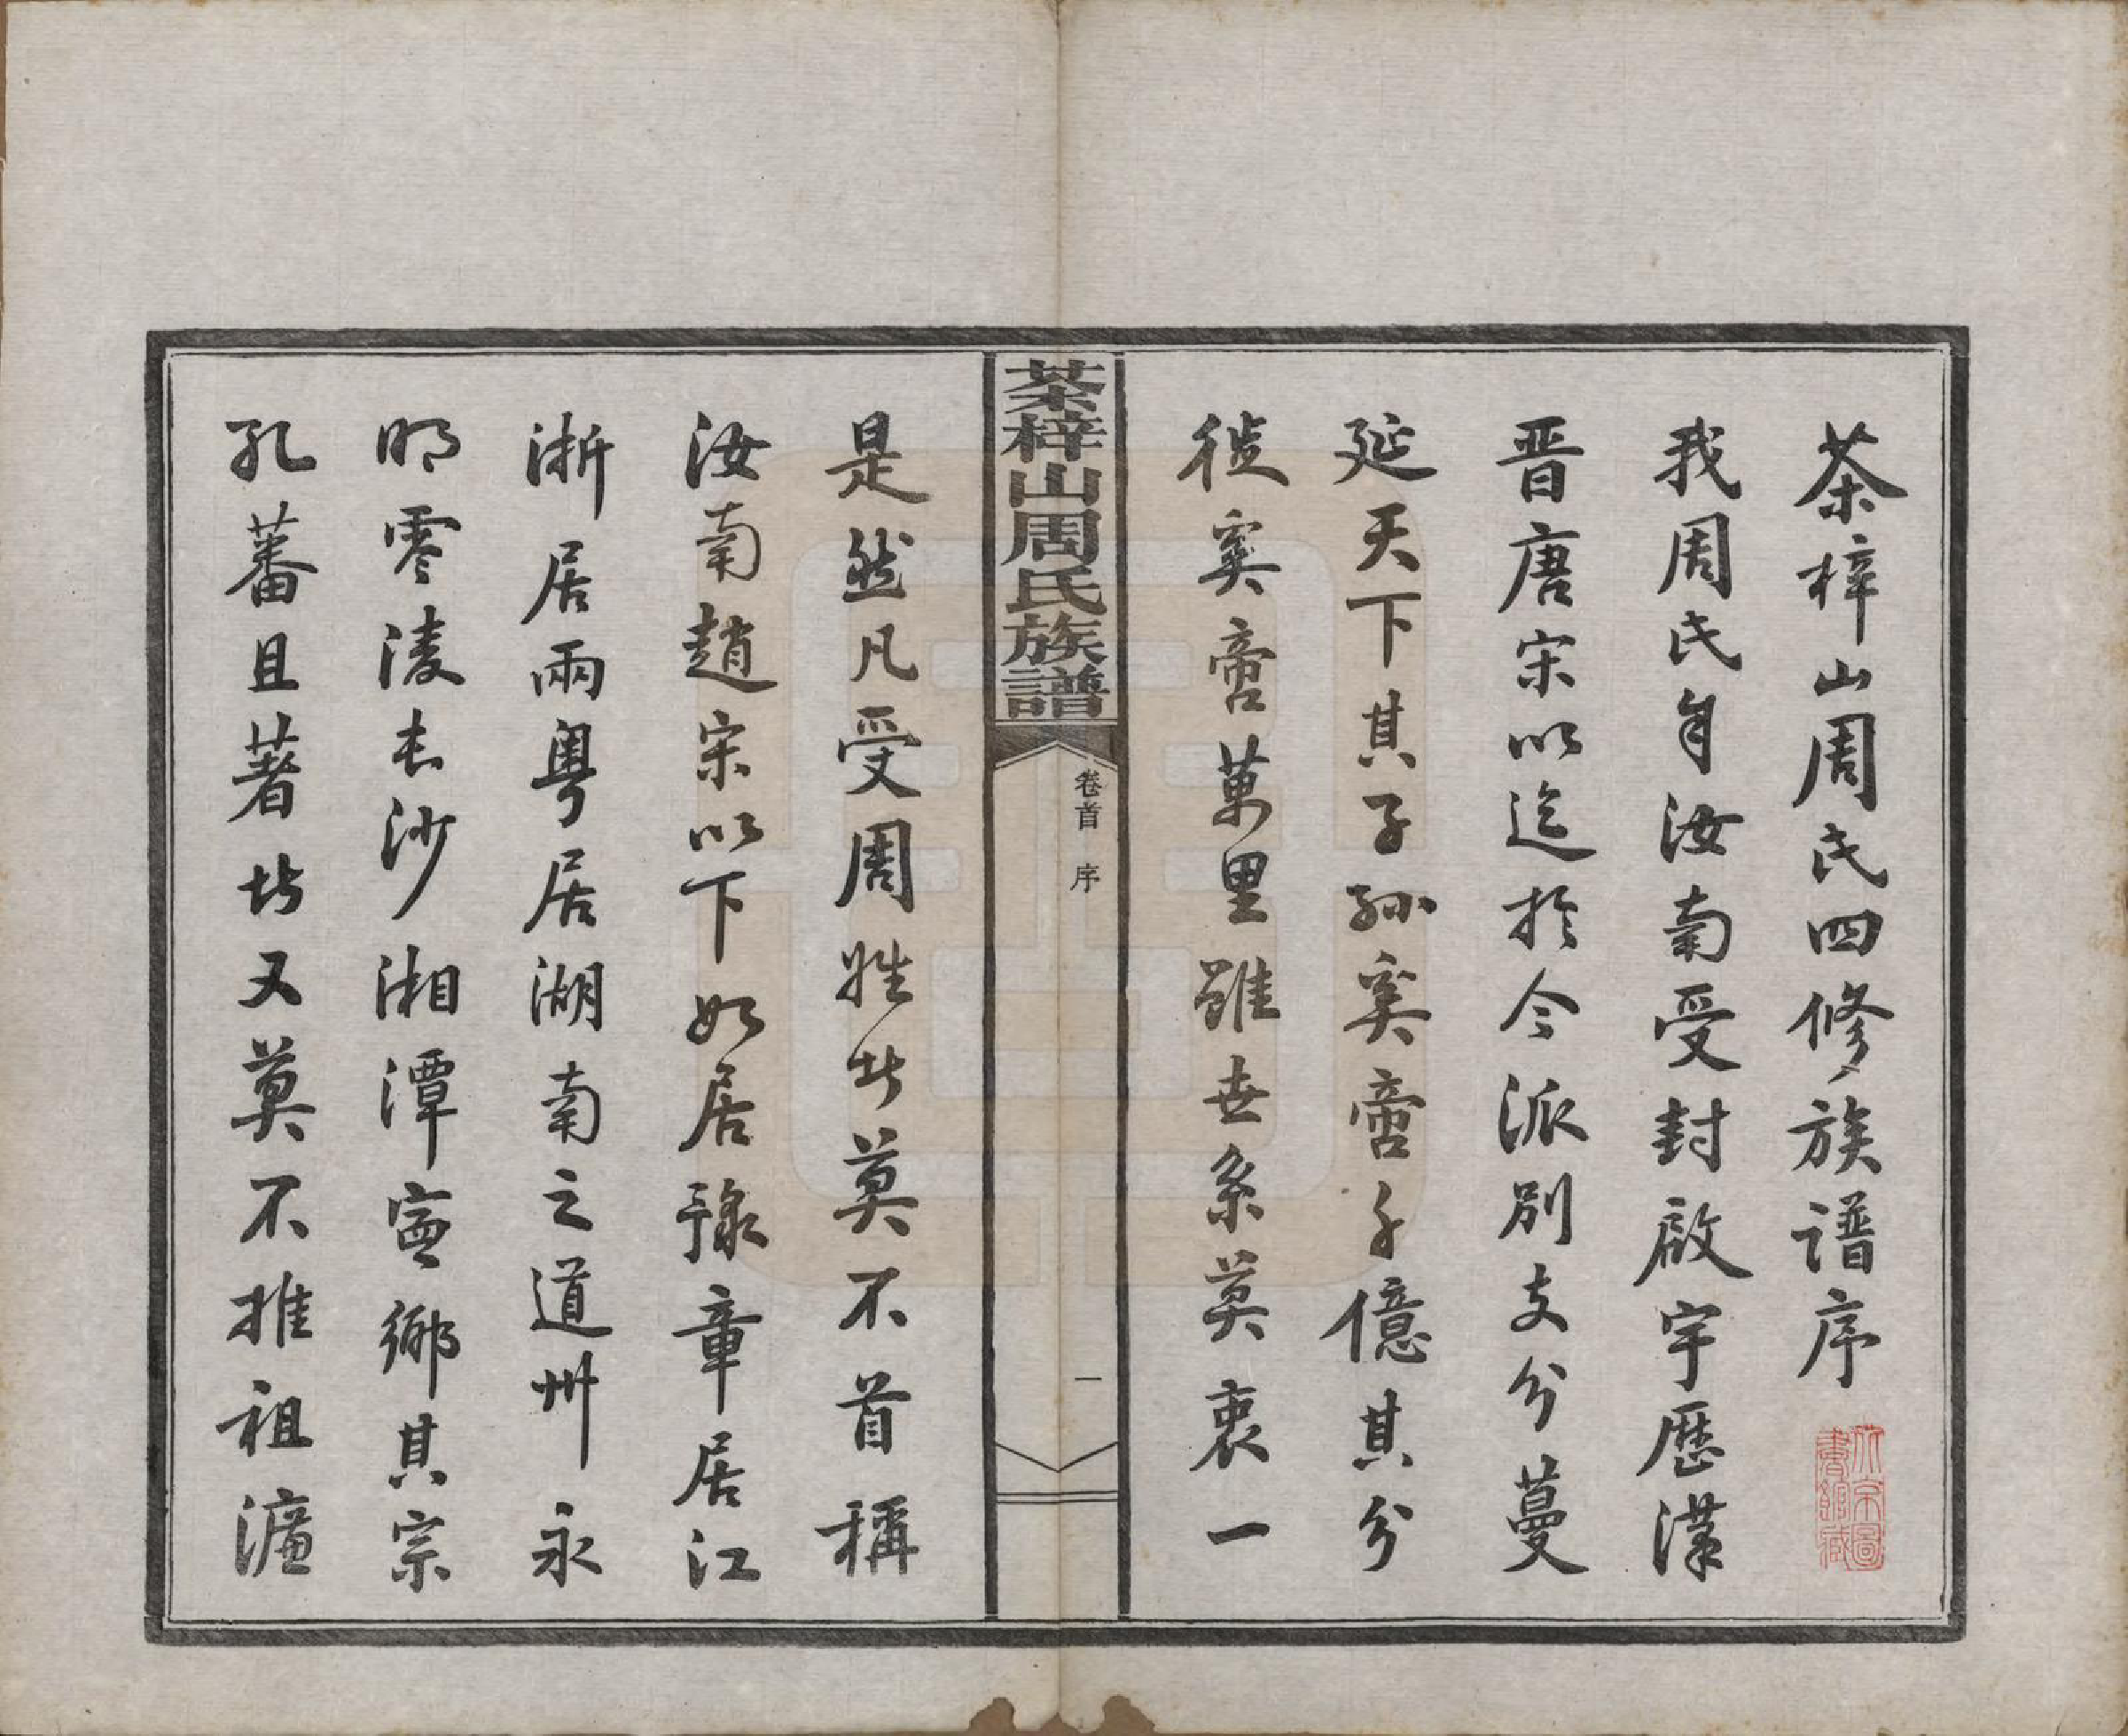 茶梓山周氏四修族譜序
我周氏自汝南受封啟宇歷漢
晋唐宋以迄於今派別支分蔓
延天下其子孫奚啻千億其分
徙奚啻萬里雖世系莫衷一
茶梓山周氏族譜
卷首 序
一
是然凡受周姓者莫不首稱
汝南趙宋以下如居豫章居江
浙居兩粵居湖南之道州永
明零陵長沙湘潭寧鄉其宗
孔蕃且著者又莫不推祖濂